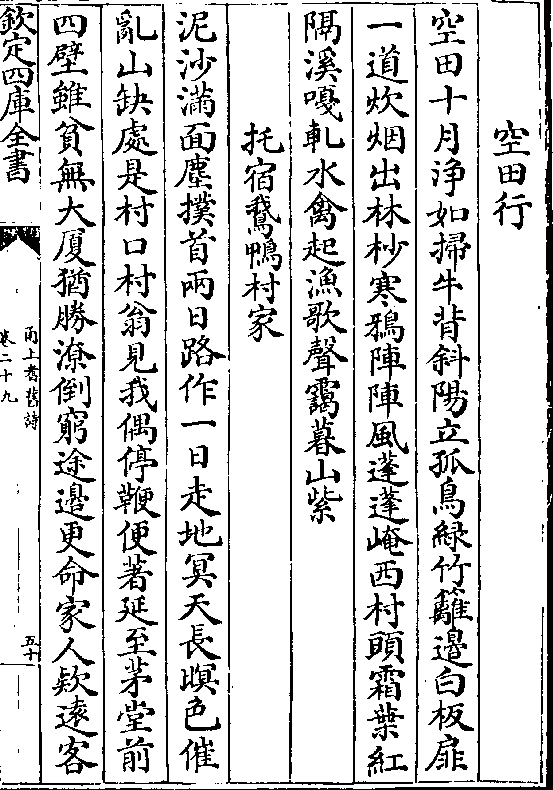 空田行
空田十月浄如掃牛背斜陽立孤鳥緑竹籬邉白板扉
一道炊烟出林杪寒鴉陣陣風蓬蓬崦西村頭霜葉紅
隔溪嘎軋水禽起漁歌聲靄暮山紫
托宿鵞鴨村家
泥沙滿面塵撲首兩日路作一日走地冥天長暝色催
亂山缺處是村口村翁見我偶停鞭便著延至茅堂前
四壁雖貧無大厦猶勝潦倒窮途邉更命家人欵遠客
欽定四庫全書
甬上耆舊詩
卷二十九
五十